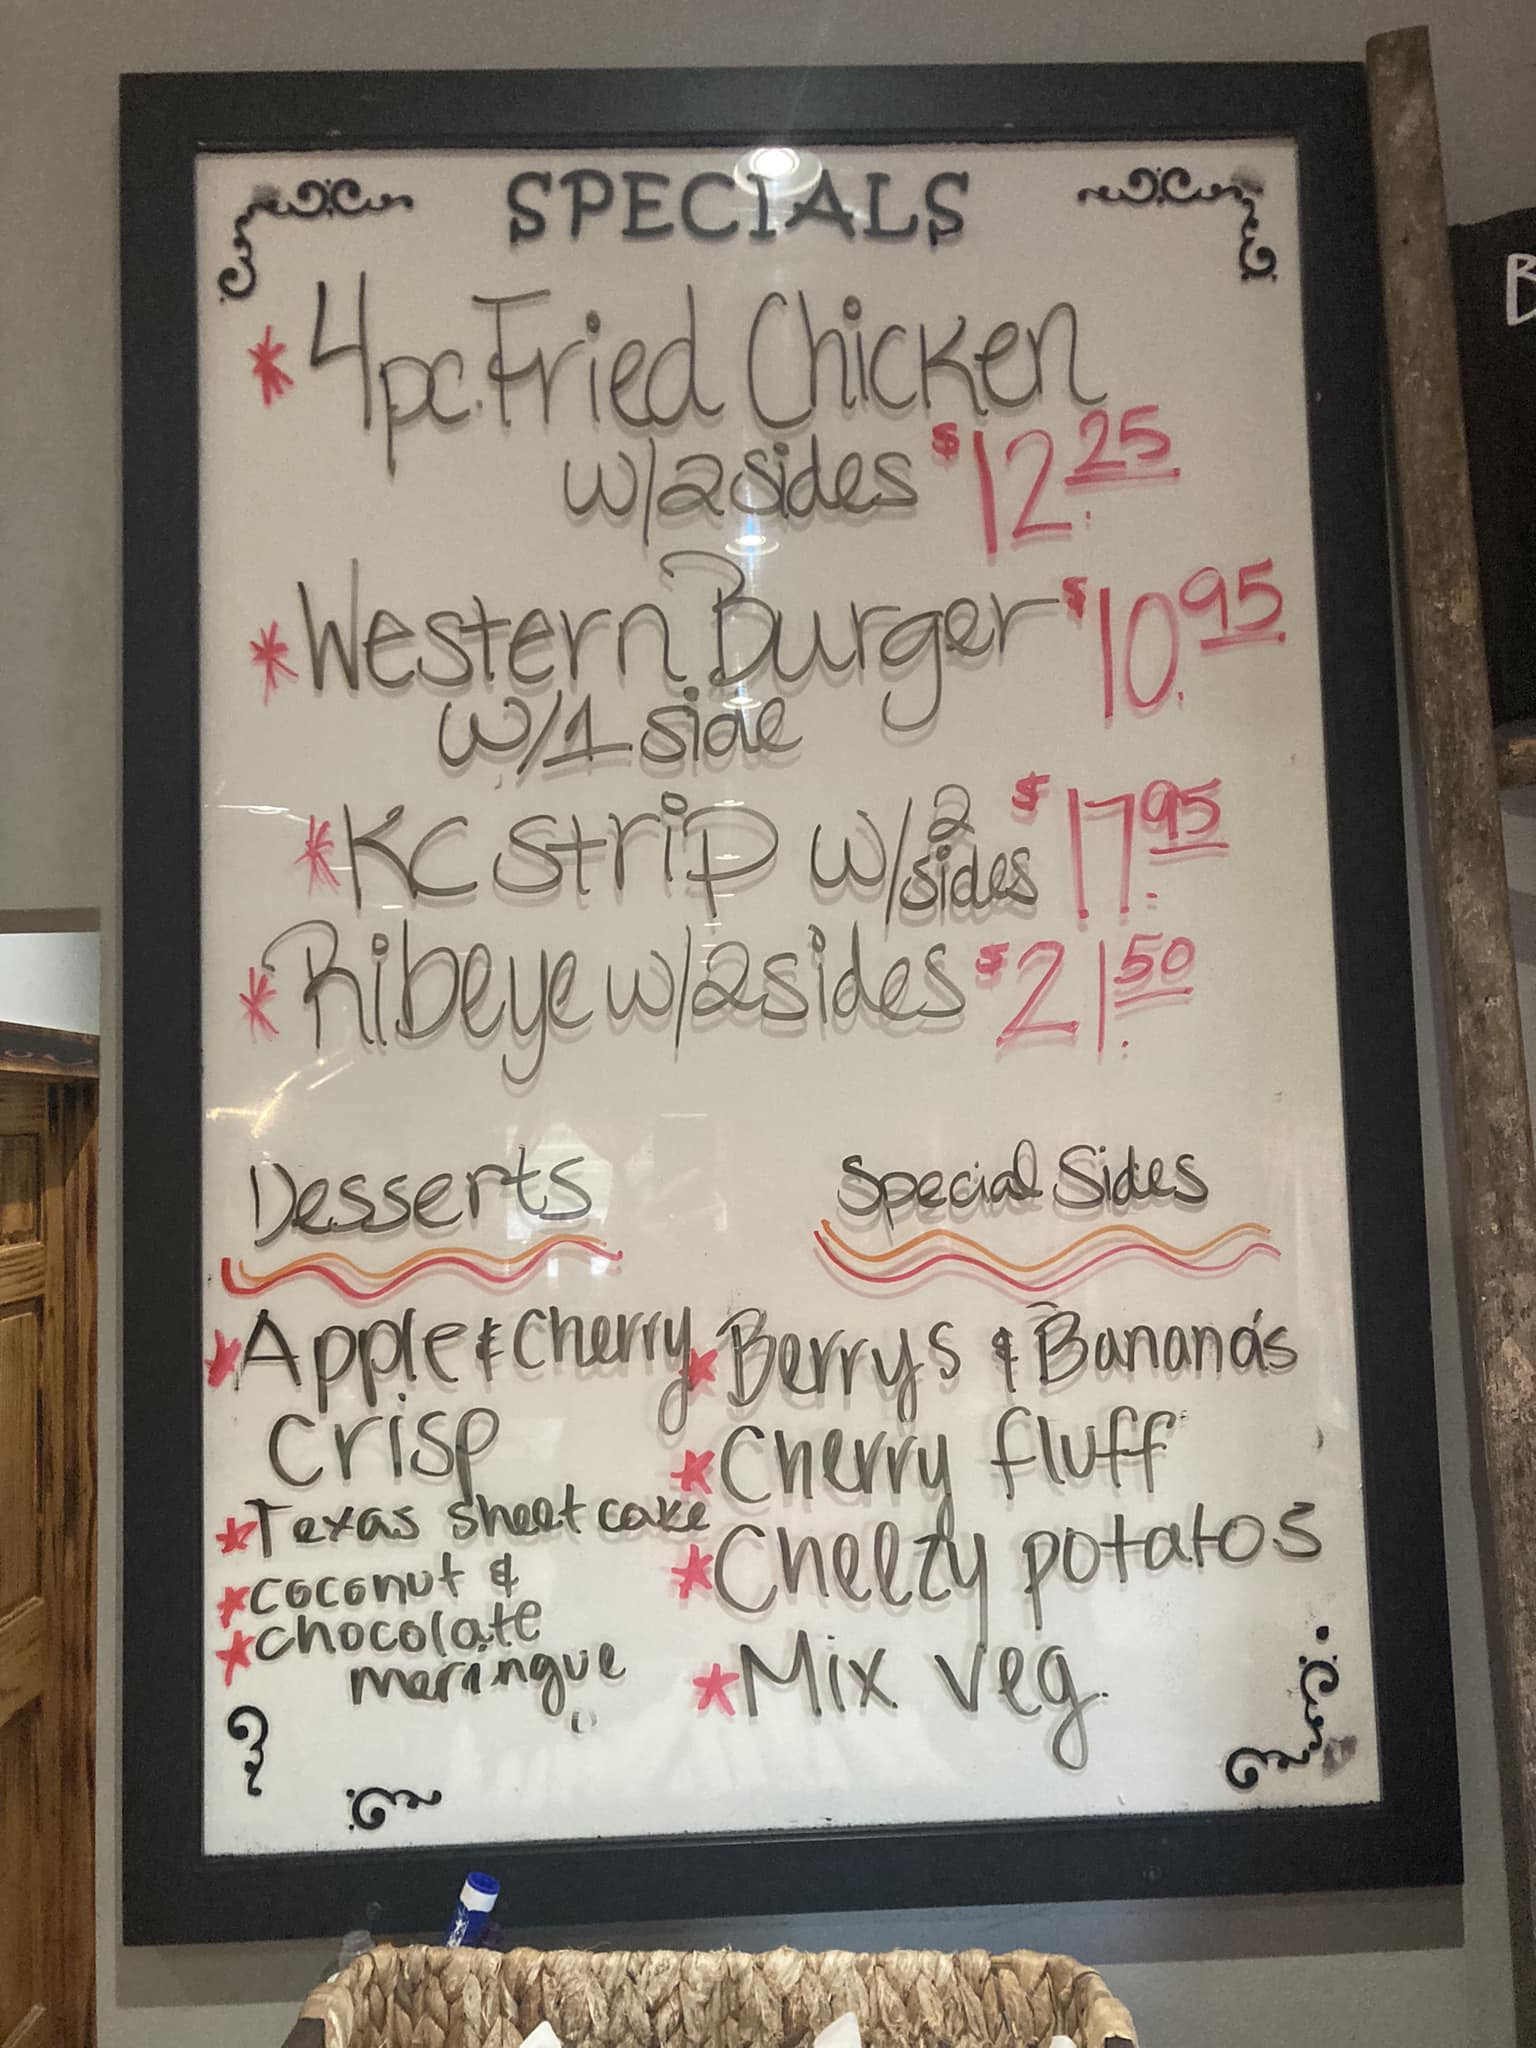 SPECIALS
* 4pc. Fried Chicken
w/2sides $12.25
* Western Burger $10.95
w/1 side
* KC strip w/2 sides $17.95
* Ribeye w/2sides $21.50
Desserts
* Apple & Cherry
Crisp
* Texas sheet cake
* coconut &
* chocolate
meringue
Special Sides
* Berrys & Banana's
* Cherry fluff
* Cheezy potatos
* Mix veg.
B